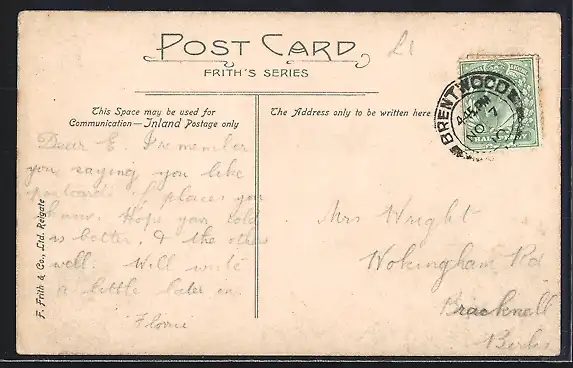 POST CARD
£1
FRITH'S SERIES
This Space may be used for
Communication—Inland Postage only
The Address only to be written here
BRENTWOOD
NO 7
Dear E. I remember
you saying you like
postcards of places you
know. Hope your cold
is better, & the others
well. Will write
a little later on.
Florrie
Mrs Wright
Wokingham Rd
Bracknell
Berks
F. Frith & Co., Ltd. Reigate